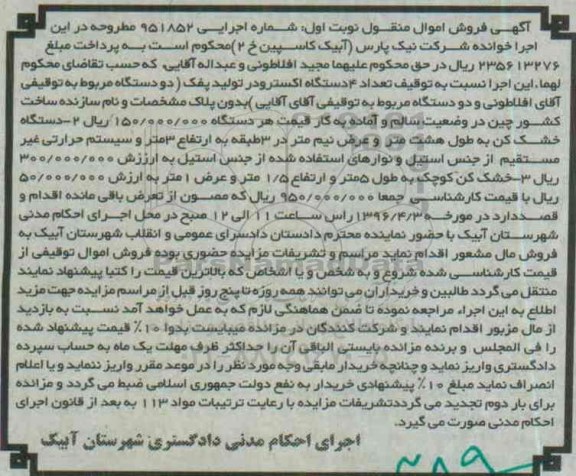 آگهـی فروش اموال منقـول نوبت اول: شـماره اجرایـی ۹۵۱۸۵۲ مطروحه در این
اجرا خوانده شـرکت نیک پارس (آبیک کاسـپین خ ۲)محکوم است بـه پرداخت مبلغ
۲۳۵۶۱۳۲۷۶ ریال در حق محکوم علیهما مجید افلاطونی و عبداله آقایی، که حسب تقاضای محکوم
لهما، این اجرا نسبت به توقیف تعداد ۴دستگاه اکسترودر تولید پفک ( دو دستگاه مربوط به توقیفی
آقای افلاطونی و دو دستگاه مربوط به توقیفی آقای آقایی )بدون پلاک مشخصات و نام سازنده ساخت
کشـور چین در وضعیت سالم و آماده به کار قیمت هر دستگاه ۱۵۰/۰۰۰/۰۰۰ ریال ۲-دستگاه
خشـک کن به طول هشت متر و عرض نیم متر در ۳طبقه به ارتفاع ۳متر و سیستم حرارتی غیر
مسـتقیم از جنس استیل و نوارهای استفاده شده از جنس استیل به ارزرش ۳۰۰/۰۰۰/۰۰۰
ریال ۳-خشک کن کوچک به طول ۵متر و ارتفاع ۱/۵ متر و عرض ۱ متر به ارزش ۵۰/۰۰۰/۰۰۰
ریال با قیمت کارشناسـی جمعا ۹۵۰/۰۰۰/۰۰۰ ریال که مصـون از تعرض باقی مانده اقدام و
قصـددارد در مورخـه ۱۳۹۶/۴/۳ راس سـاعت ۱۱ الی ۱۲ صبح در محل اجـرای احکام مدنی
شهرسـتان آبیک با حضور نماینده محترم دادستان دادسرای عمومی و انقلاب شهرستان آبیک به
فروش مال مشعور اقدام نماید مراسم و تشریفات مزایده حضوری بوده فروش اموال توقیفی از
قیمت کارشناسـی شده شروع و به شخص و یا اشخاص که بالاترین قیمت را کتبا پیشنهاد نمایند
منتقل می گردد طالبین و خریداران می توانند همه روزه تا پنج روز قبل از مراسم مزایده جهت مزید
اطلاع به این اجراء مراجعه نموده تا ضمن هماهنگی لازم که به عمل خواهد آمد نسـبت به بازدید
از مال مزبور اقدام نمایند و شرکت کنندگان در مزانده میبایست بدوا ۱۰٪ قیمت پیشنهاد شده
را فی المجلس و برنده مزانده بایستی الباقی آن را حداکثر ظرف مهلت یک ماه به حساب سپرده
دادگستری واریز نماید و چنانچه خریدار مابقی وجه مورد نظر را در موعد مقرر واریز ننماید و یا اعلام
انصراف نماید مبلغ ۱۰٪ پیشنهادی خریدار به نفع دولت جمهوری اسلامی ضبط می گردد و مزانده
برای بار دوم تجدید می گرددتشریفات مزایده با رعایت ترتیبات مواد ۱۱۳ به بعد از قانون اجرای
احکام مدنی صورت می گیرد.
اجرای احکام مدنی دادگستری شهرستان آبیک